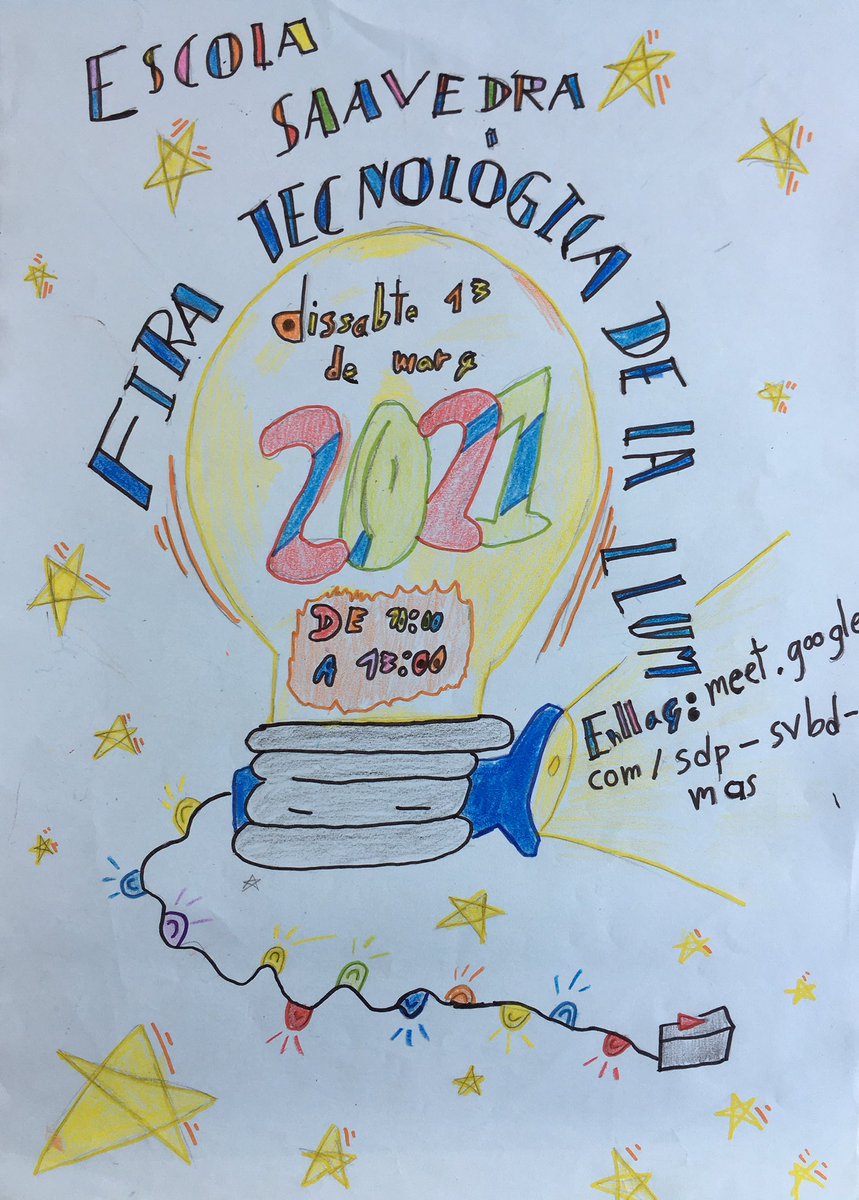 ESCOLA
SAAVEDRA
FIRA TECNOLÒGICA DE lA LLUM
dissabte 13
de març
2021
DE 10:00
A 13:00
Enllaç: meet.google
com/sdp-svbd-
mas